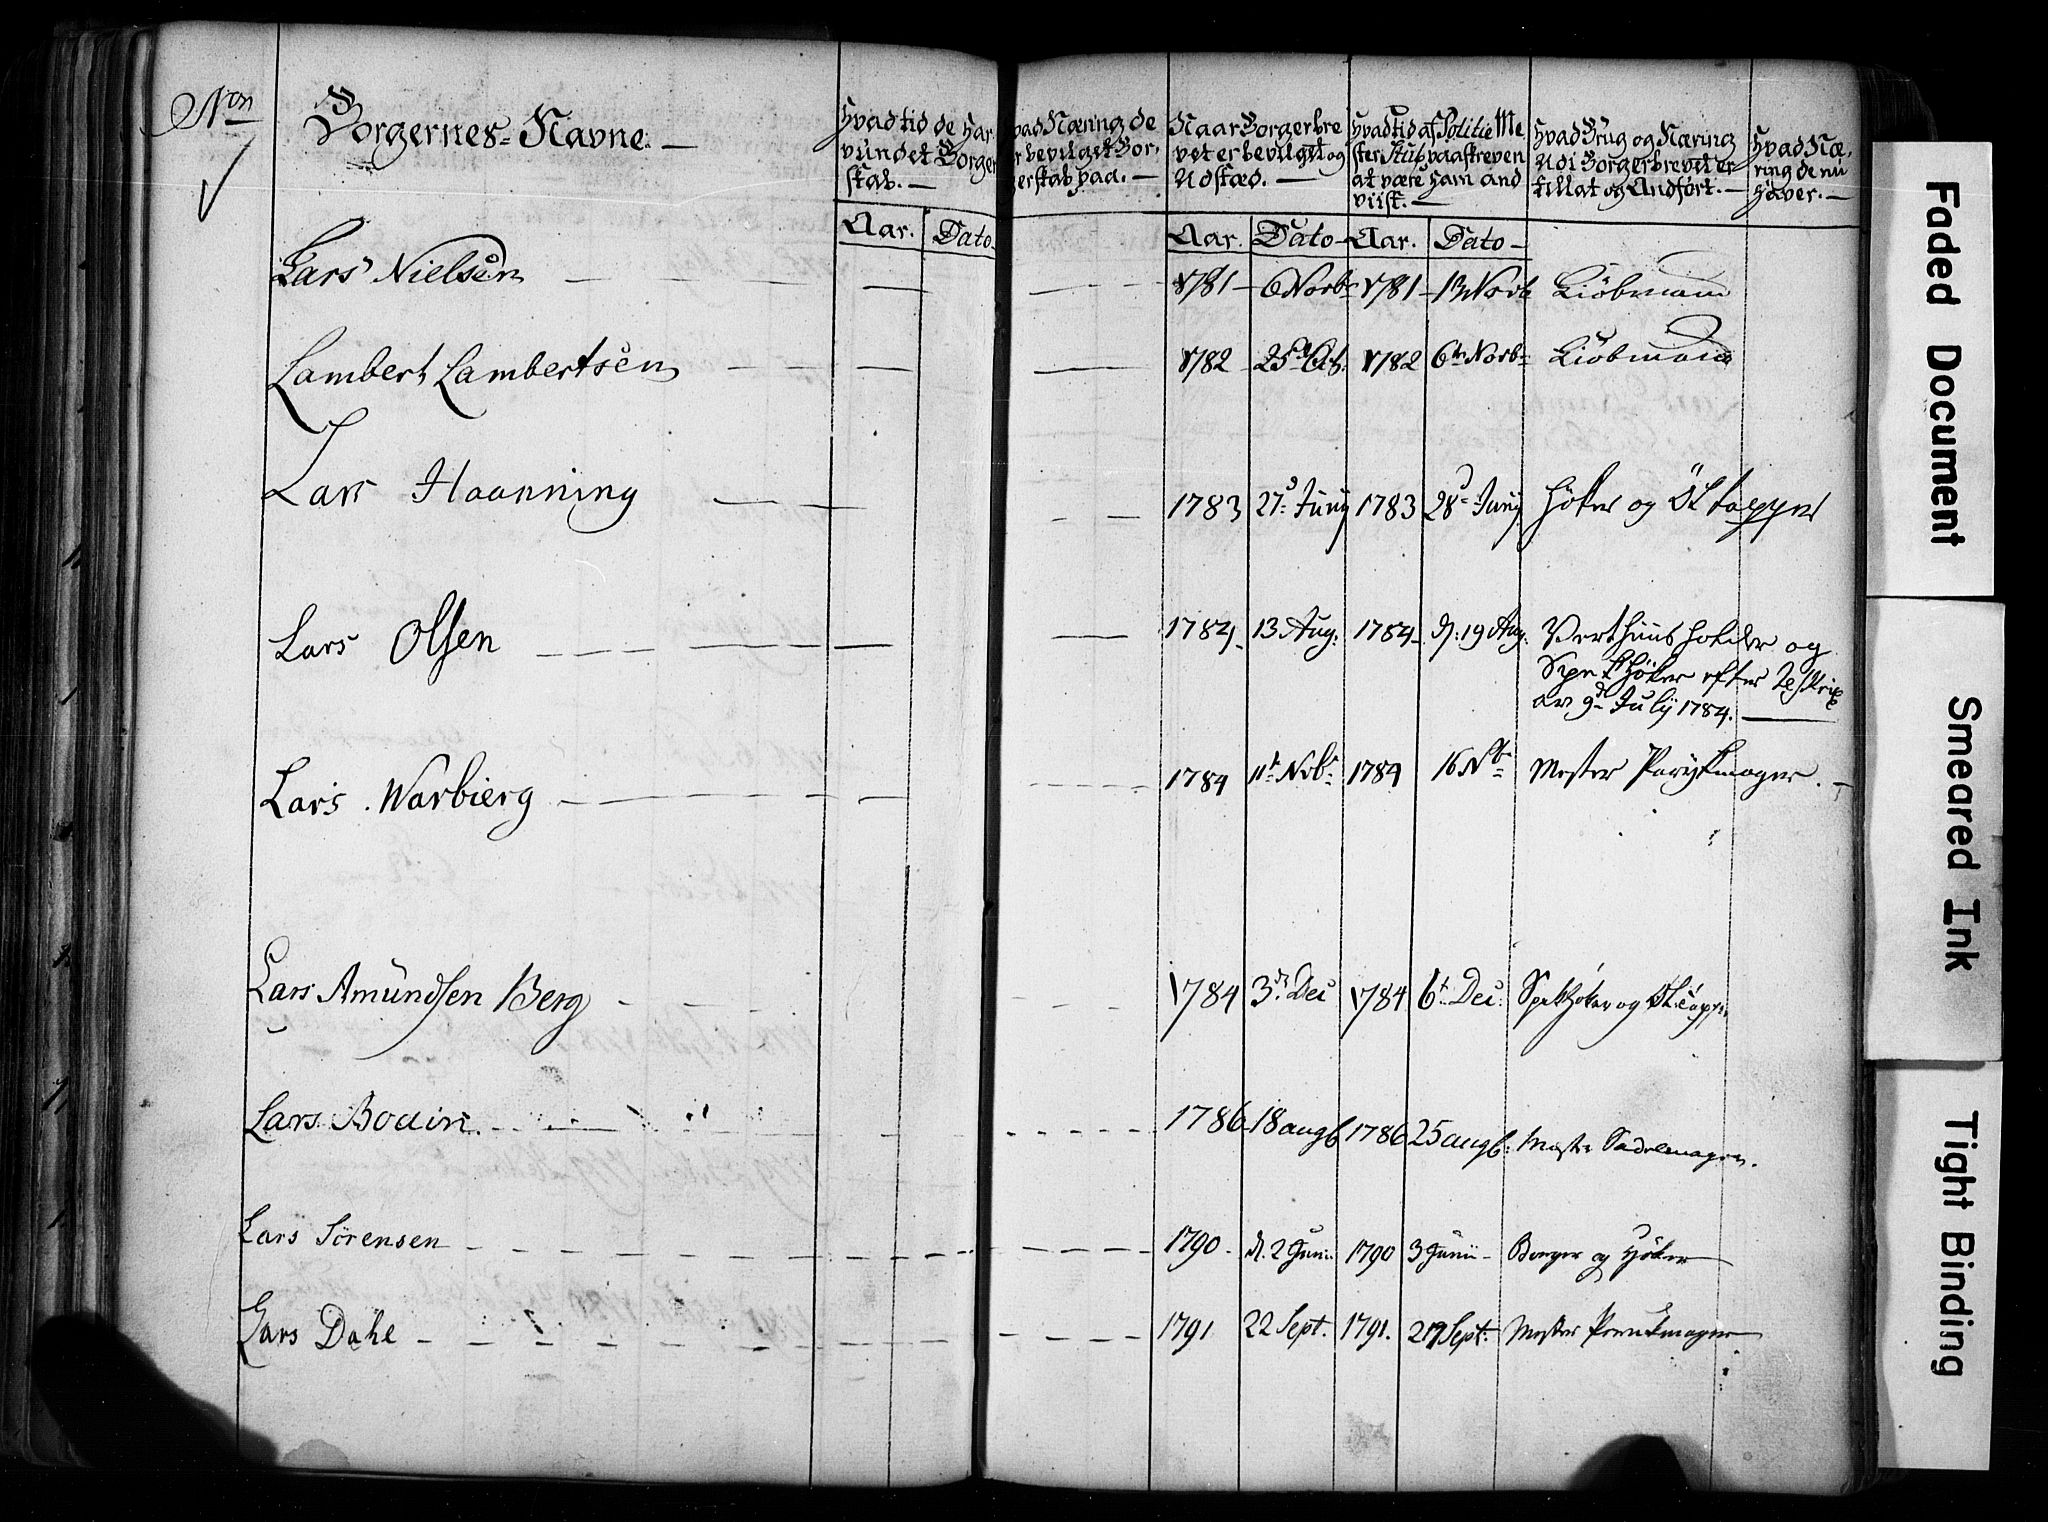 Non
Borgernes Navne. —
Hvad tid de har
vundet Borger
skab. —
Aar. Dato
vad Næring de
r bevilget Bor-
gerskab paa. —
Naar Borgerbre
vet er bevilget og
Udstæd. —
Aar. Dato
Hvad Tid af Politie Me
ster Stub paaskreven
at være ham and
viist. —
Aar. Dato
Hvad Brug og Næring
Udi Borgerbrevet er
tillat og Anført. —
Hvad Næ-
ring de nu
haver. —
Lars Nielsen — — — 1781 – 6 Novbr 1781 – 13 Novb Kiöbmand
Lambert Lambertsen — — — 1782 25 Oct. 1782 6te Novbr Kiöbmand
Lars Haanning — — 1783 27de Junij 1783 28de Junij Höker og Öltapper
Lars Olsen — — — 1784 13 Aug. 1784 d: 19 Aug. Verthuusholder og
Spekhöker efter Rescrip
av 9de Julij 1784. —
Lars Warbierg — — — 1784 11te Nobr 1784 16 Nbr Mester Parykmager. —
Lars Amundsen Berg — — 1784 3de Dec 1784 6t Dec: Spekhöker og Öltapper
Lars Bodin. — — 1786 18 augb 1786 25 augb: Mester Sadelmager.
Lars Sørensen — — — 1790 d. 2 Junii 1790 3 Junii Borger og Høker
Lars Dahl — — — 1791 22 Sept. 1791. 27 Sept: Mester Peruckmager
Faded Document
Smeared Ink
Tight Binding